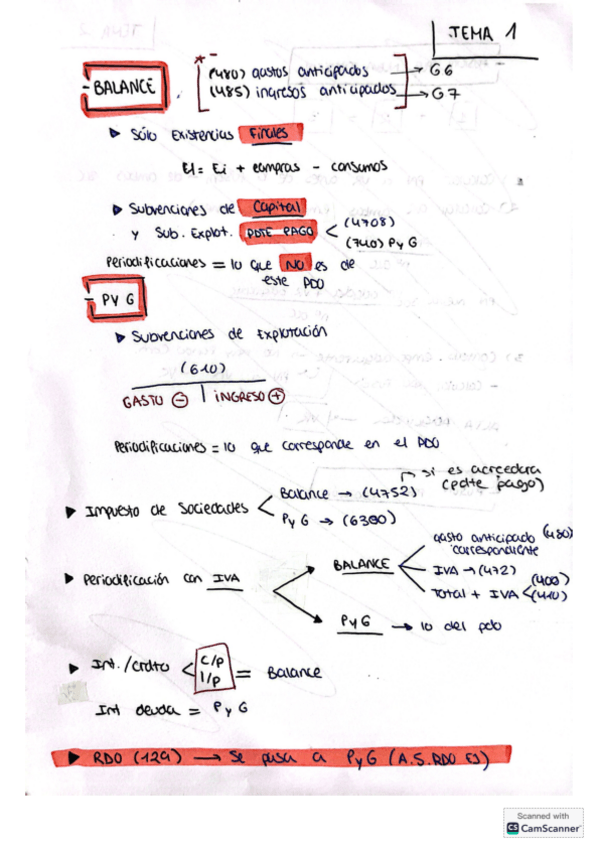 TEMA 1
* -
- BALANCE
(480) gastos anticipados → G6
(485) ingresos anticipados → G7
▶ Sólo Existencias Finales
Ef = Ei + compras - consumos
▶ Subvenciones de Capital
y Sub. Explot. PDTE PAGO < (4708)
(740) PyG
Periodificaciones = lo que NO es de
este PDO
- PYG
▶ Subvenciones de Explotación
(610)
GASTO ⊖ | INGRESO ⊕
Periodificaciones = lo que corresponde en el PDO
▶ Impuesto de Sociedades <
Balance → (4752) → si es acreedora
(pdte pago)
PyG → (6300)
▶ Periodificación con IVA
BALANCE
gasto anticipado (480)
correspondiente
IVA → (472)
TOTAL + IVA < (400)
(410)
PyG → lo del pdo
▶ Int./crdto < C/P
l/p = Balance
Int deuda = PyG
▶ RDO (129) → Se pasa a PyG (A.5.RDO EJ)
Scanned with
CS CamScanner